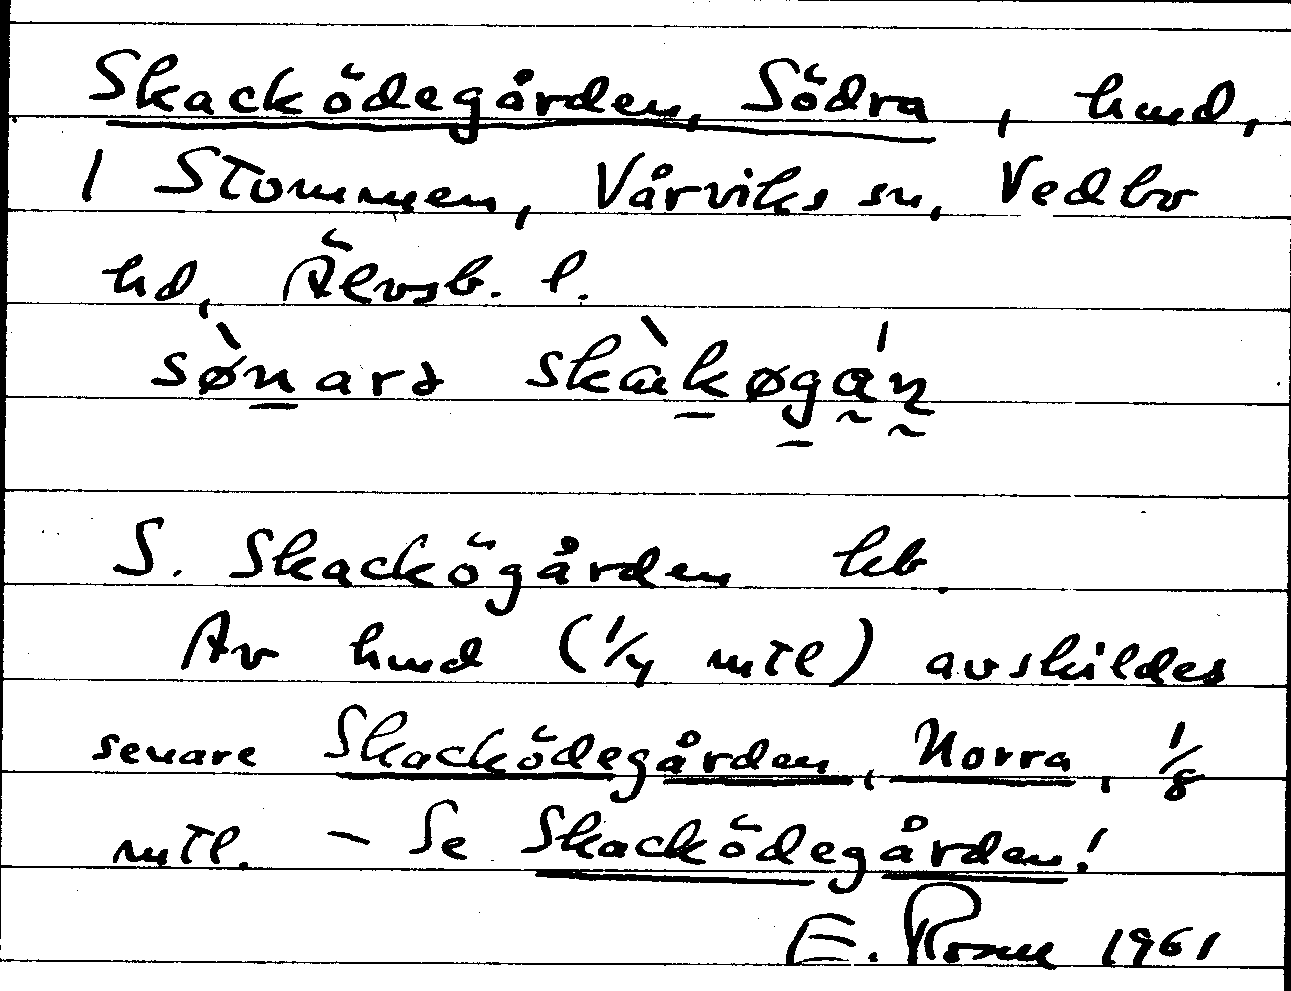 Skacködegården, Södra, hmd,
1 Stommen, Vårviks sn, Vedbo
hd, Älvsb. l.
sø̀nara skàkøgán
S. Skackögården kb.
Av hmd (1/4 mtl) avskildes
senare Skacködegården, Norra, 1/8
mtl. - Se Skacködegården!
E. Rosell 1961